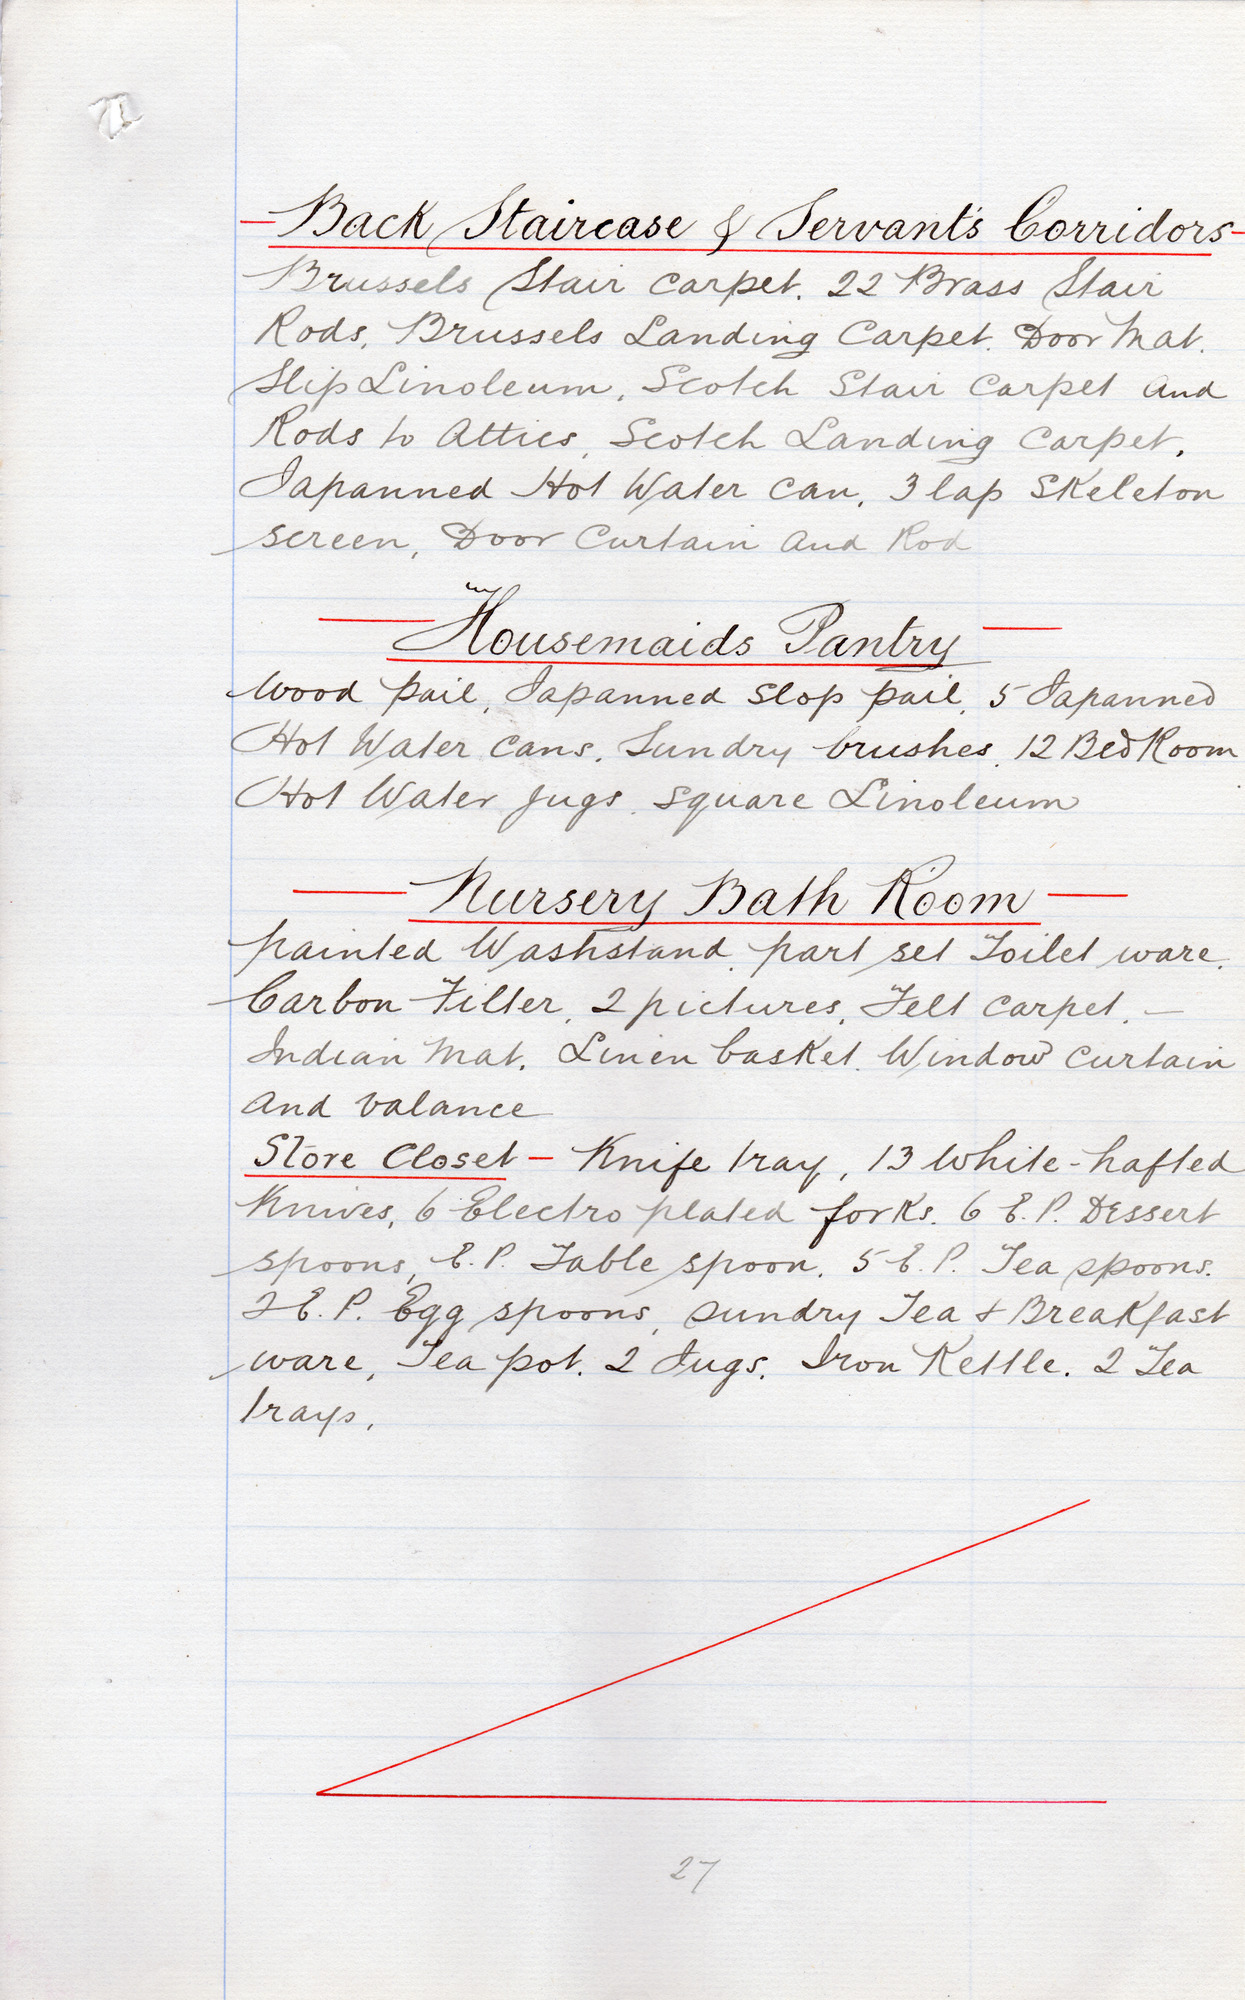 Back Staircase & Servant's Corridors
Brussels Stair carpet. 22 Brass Stair
Rods, Brussels Landing Carpet. Door Mat.
Slip Linoleum, Scotch Stair Carpet and
Rods to Attics, Scotch Landing Carpet,
Japanned Hot Water Can, 3 lap Skeleton
screen, Door Curtain and Rod
Housemaids Pantry
Wood pail, Japanned Slop pail, 5 Japanned
Hot Water Cans, Sundry brushes, 12 Bed Room
Hot Water Jugs, Square Linoleum
Nursery Bath Room
painted Washstand, part set Toilet ware,
Carbon Filter, 2 pictures, Felt Carpet, —
Indian Mat, Linen basket, Window Curtain
and valance
Store Closet — Knife tray, 13 White-hafted
Knives, 6 Electro plated forks, 6 E.P. Dessert
spoons, E.P. Table spoon, 5 E.P. Tea spoons.
2 E.P. Egg spoons, sundry Tea & Breakfast
ware, Tea pot. 2 Jugs. Iron Kettle. 2 Tea
trays.
27